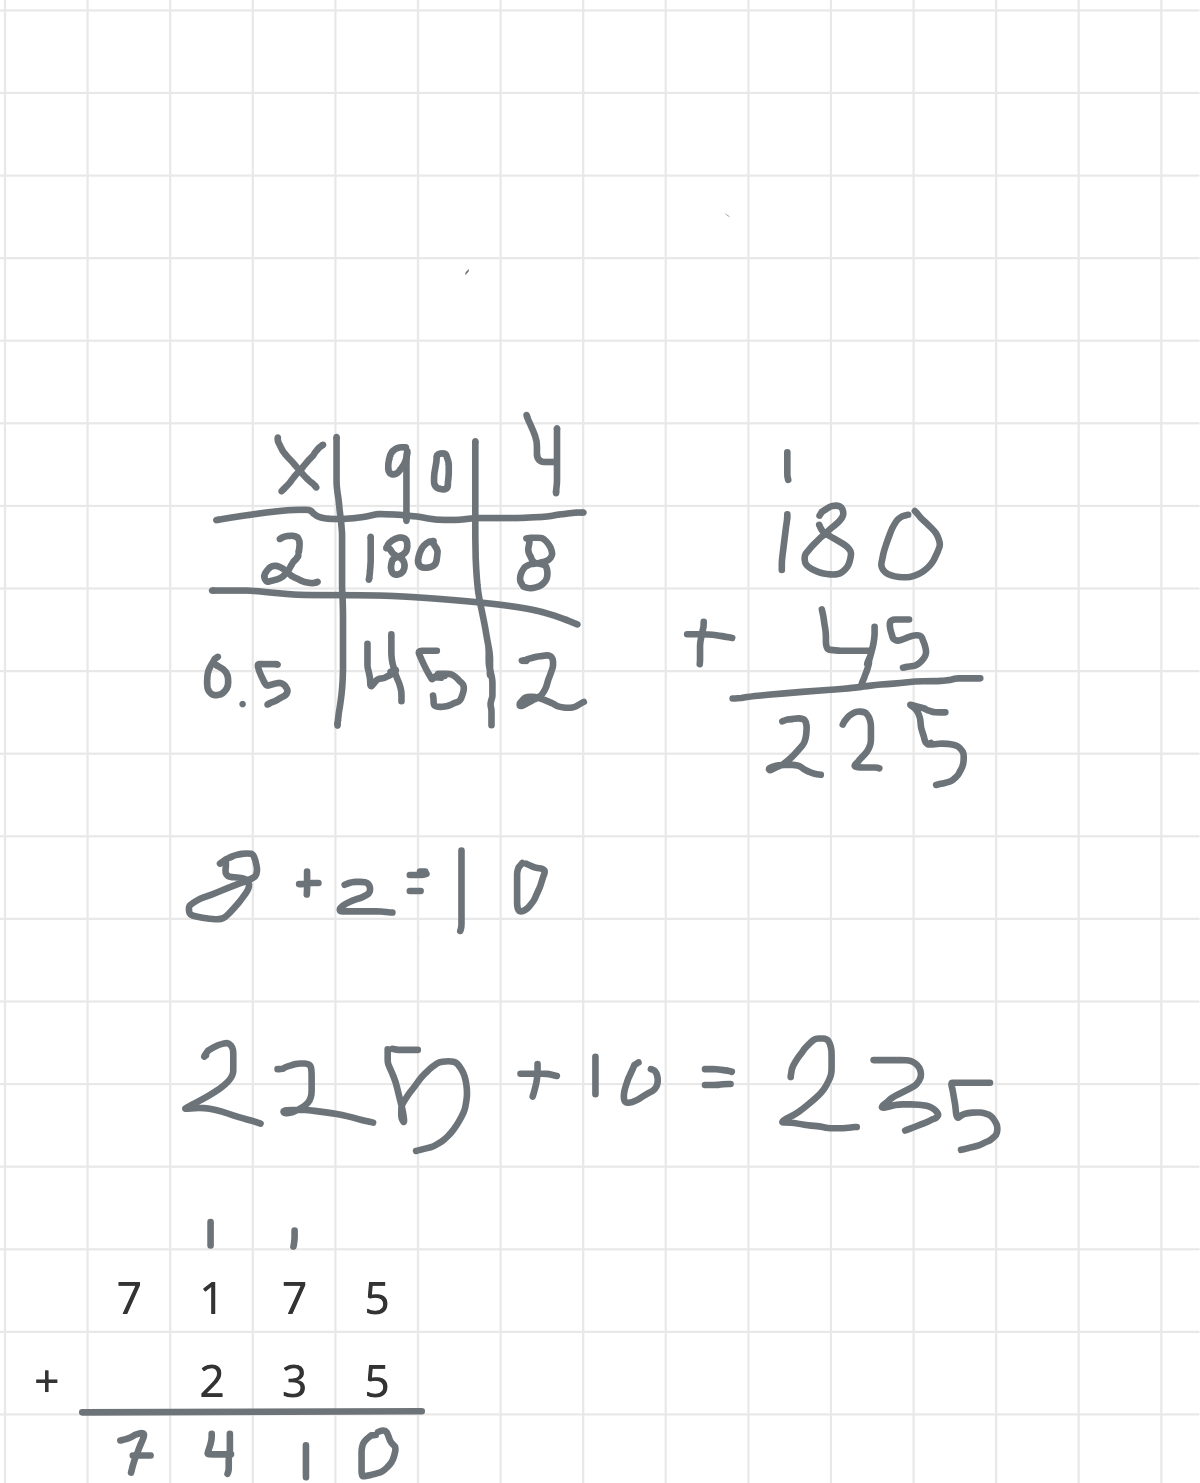 X | 90 | 4
2 | 180 | 8
0.5 | 45 | 2
1
180
+ 45
225
8 + 2 = 10
225 + 10 = 235
1 1
7 1 7 5
+ 2 3 5
7 4 1 0